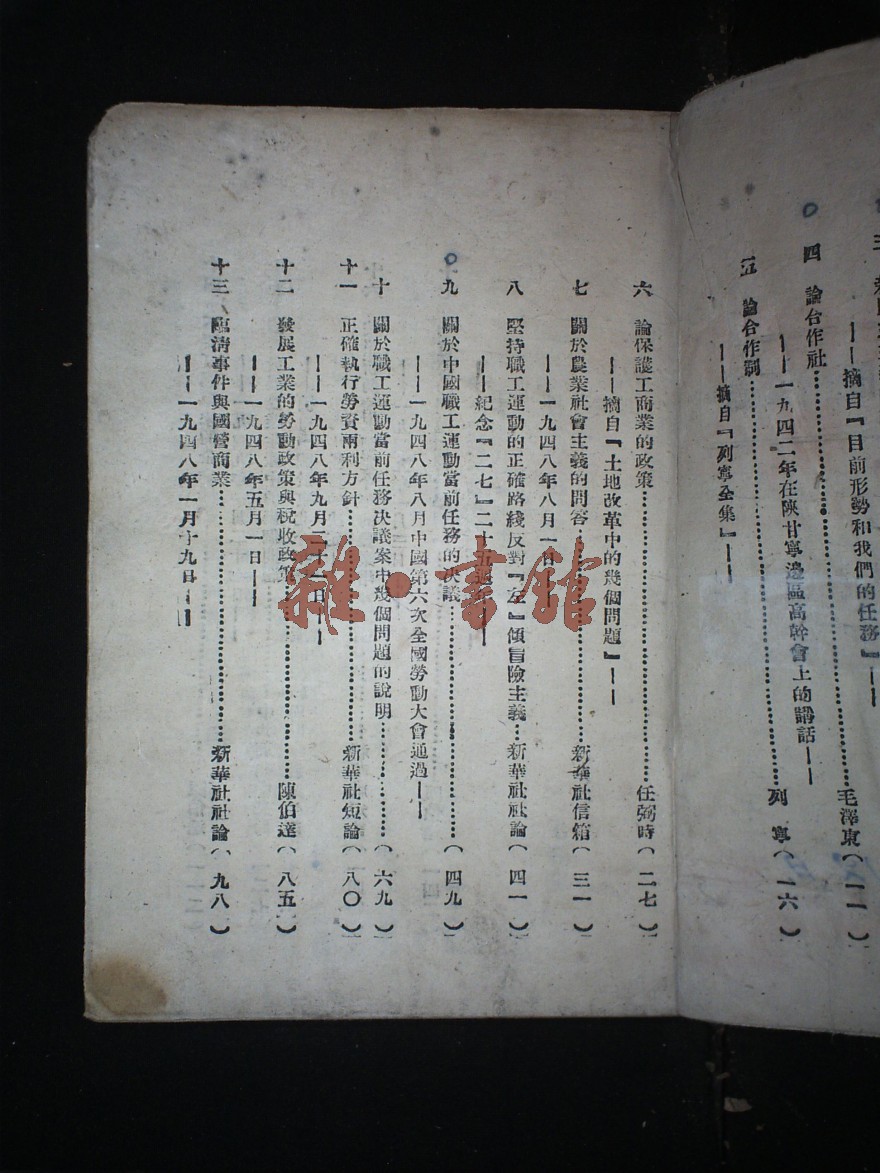 ——摘自『目前形勢和我們的任務』——
四　論合作社……………………………毛澤東（一一）
——一九四二年在陝甘寧邊區高幹會上的講話——
五　論合作制……………………………列　寧（一六）
——摘自『列寧全集』——
六　論保護工商業的政策……………………………任弼時（二七）
——摘自『土地改革中的幾個問題』——
七　關於農業社會主義的問答……………………………新華社信箱（三一）
——一九四八年八月一日——
八　堅持職工運動的正確路綫反對『左』傾冒險主義…新華社社論（四一）
——紀念『二七』二十五週年——
九　關於中國職工運動當前任務的決議……………………………（四九）
——一九四八年八月中國第六次全國勞動大會通過——
十　關於職工運動當前任務決議案中幾個問題的說明……………（六九）
十一　正確執行勞資兩利方針……………………………新華社短論（八〇）
——一九四八年九月二十一日——
十二　發展工業的勞動政策與稅收政策……………………………陳伯達（八五）
——一九四八年五月一日——
十三　臨清事件與國營商業……………………………新華社社論（九八）
——一九四八年一月十九日——
雜·書館